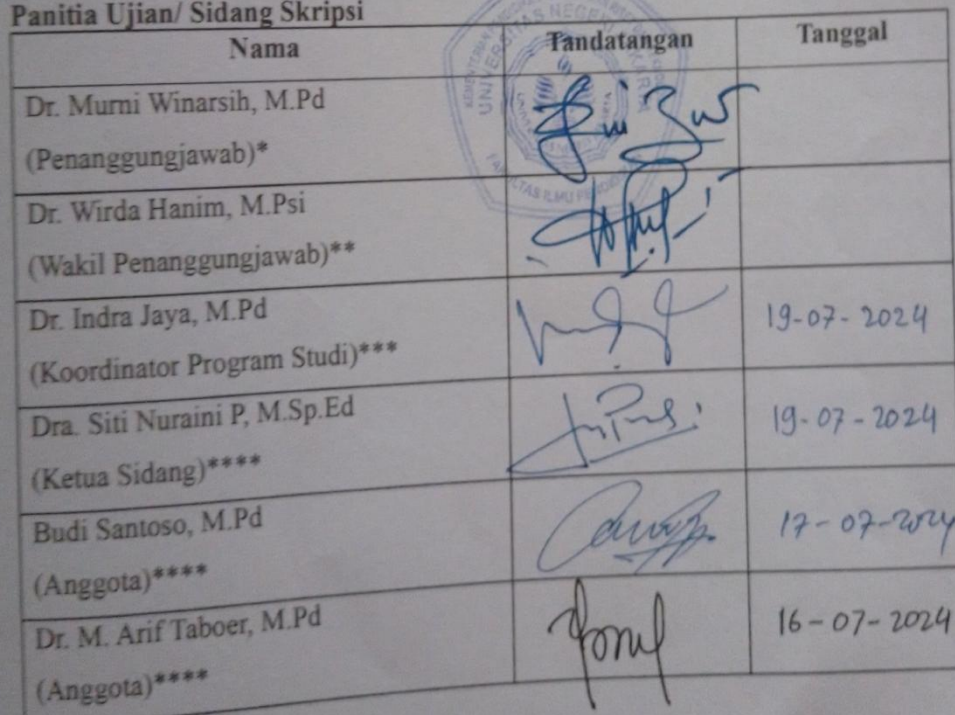 Panitia Ujian/ Sidang Skripsi
Nama Tandatangan Tanggal
Dr. Murni Winarsih, M.Pd
(Penanggungjawab)*
Dr. Wirda Hanim, M.Psi
(Wakil Penanggungjawab)**
Dr. Indra Jaya, M.Pd
(Koordinator Program Studi)***
19-07-2024
Dra. Siti Nuraini P, M.Sp.Ed
(Ketua Sidang)****
19-07-2024
Budi Santoso, M.Pd
(Anggota)****
17-07-2024
Dr. M. Arif Taboer, M.Pd
(Anggota)****
16-07-2024
UNIVERSITAS NEGERI JAKARTA
FAKULTAS ILMU PENDIDIKAN